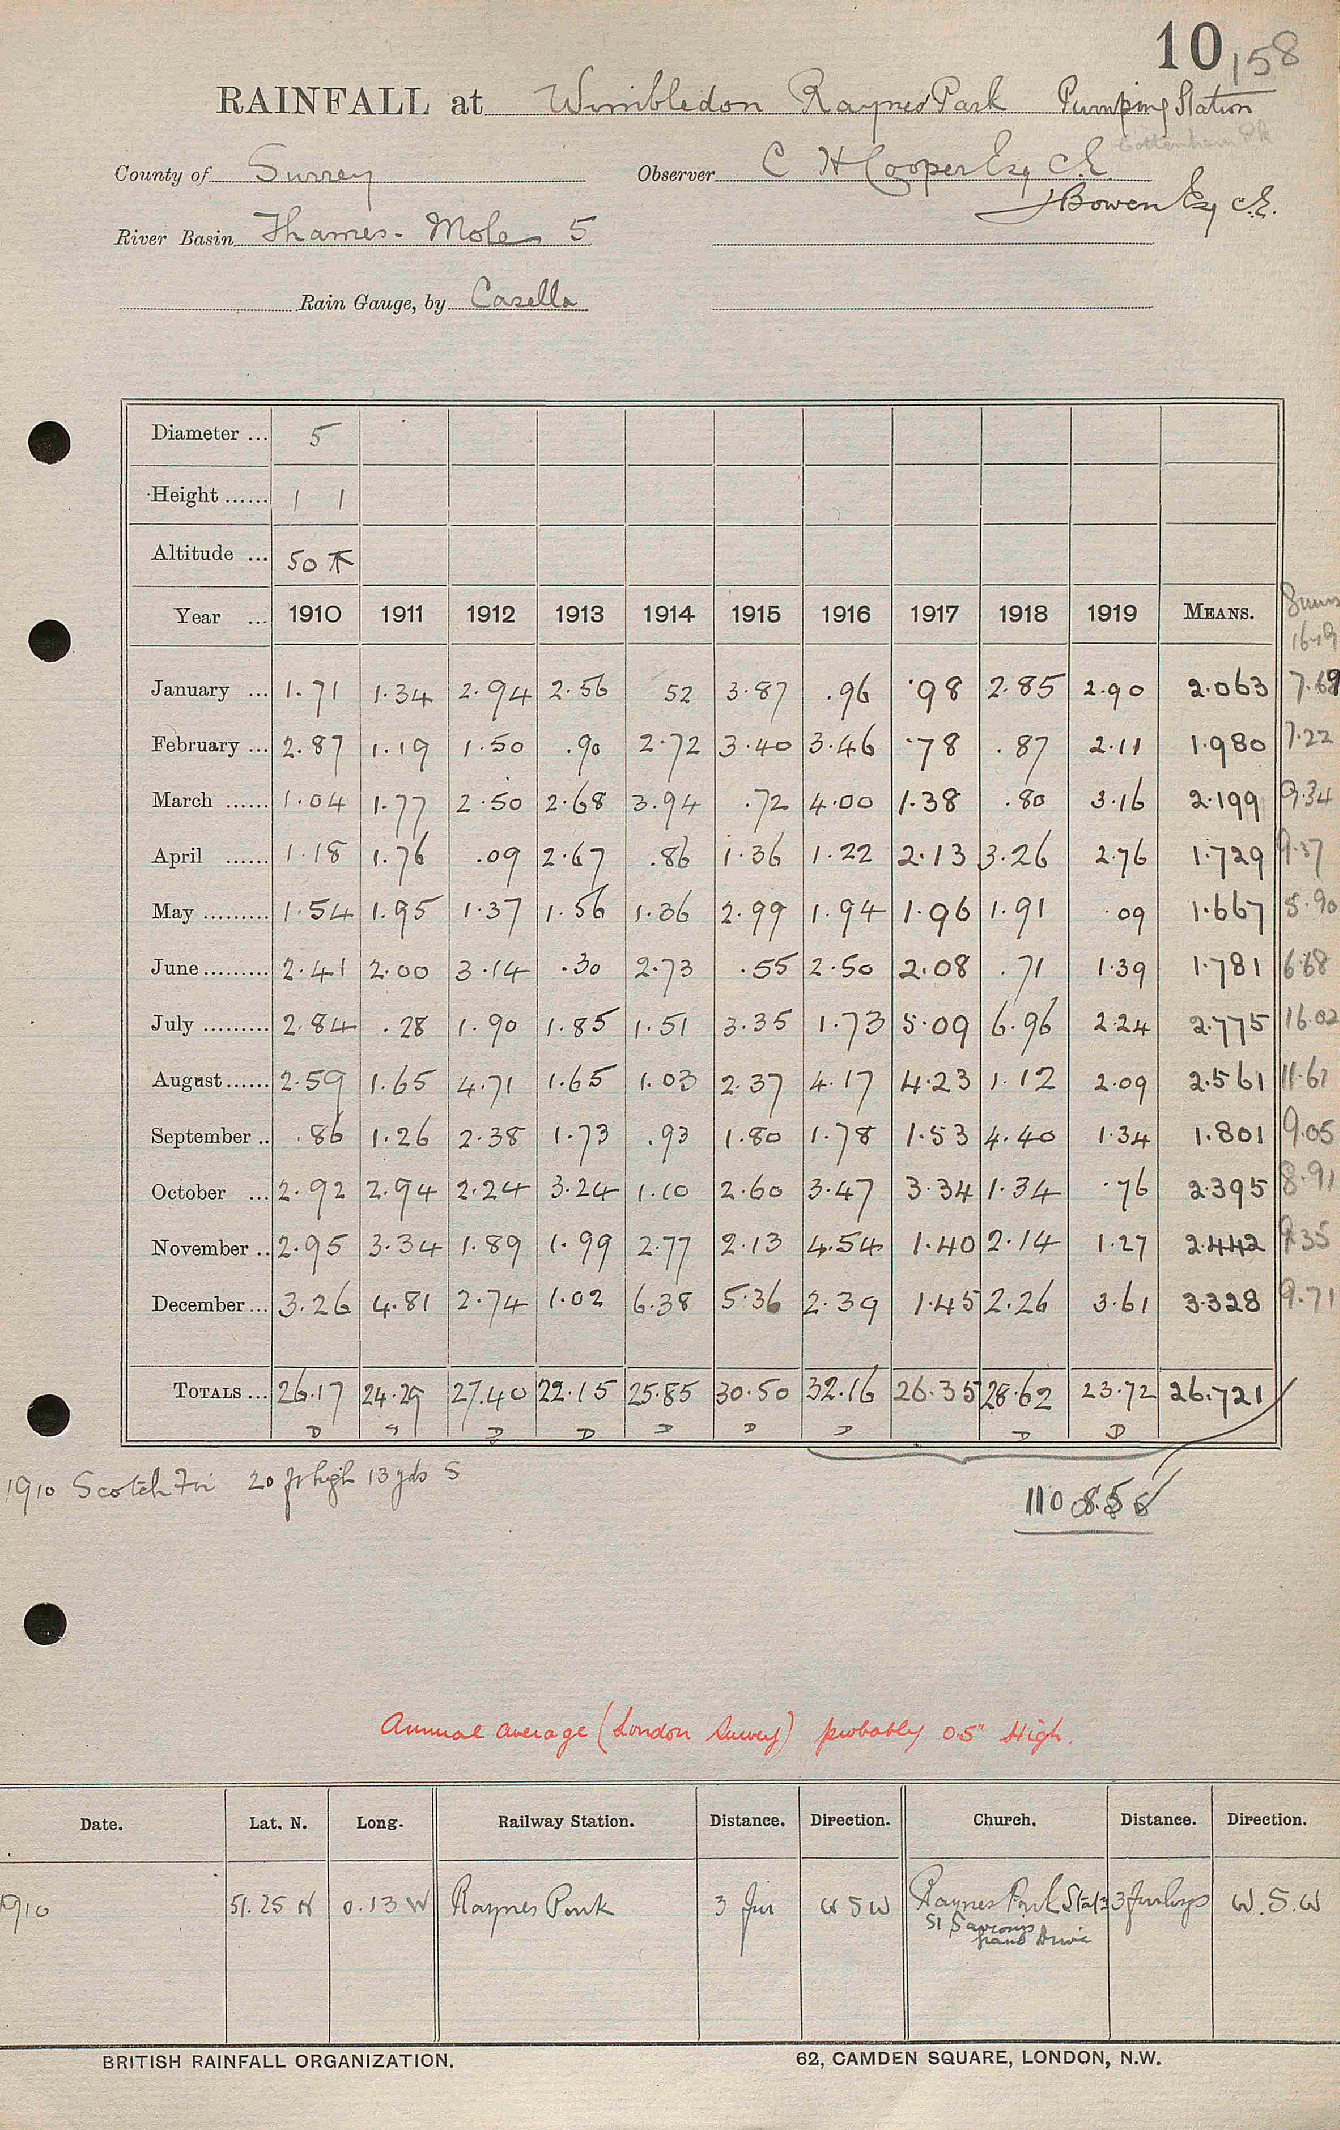 10 158
RAINFALL at Wimbledon Raynes Park Pumping Station
Cottenham Pk
County of Surrey Observer C H Cooper Esq C.E.
J Bowen Esq C.E.
River Basin Thames - Mole 5
Rain Gauge, by Casella
Diameter ... 5
Height ...... 1 1
Altitude ... 50 ft
Year ... 1910 1911 1912 1913 1914 1915 1916 1917 1918 1919 MEANS. Sums
16-19
January ... 1.71 1.34 2.94 2.56 52 3.87 .96 .98 2.85 2.90 2.063 7.69
February ... 2.87 1.19 1.50 .90 2.72 3.40 3.46 .78 .87 2.11 1.980 7.22
March ...... 1.04 1.77 2.50 2.68 3.94 .72 4.00 1.38 .80 3.16 2.199 9.34
April ...... 1.18 1.76 .09 2.67 .86 1.36 1.22 2.13 3.26 2.76 1.729 9.37
May ......... 1.54 1.95 1.37 1.56 1.36 2.99 1.94 1.96 1.91 .09 1.667 5.90
June ......... 2.41 2.00 3.14 .30 2.73 .55 2.50 2.08 .71 1.39 1.781 6.68
July ......... 2.84 .28 1.90 1.85 1.51 3.35 1.73 5.09 6.96 2.24 2.775 16.02
August ...... 2.59 1.65 4.71 1.65 1.03 2.37 4.17 4.23 1.12 2.09 2.561 11.61
September .. .86 1.26 2.38 1.73 .93 1.80 1.78 1.53 4.40 1.34 1.801 9.05
October ... 2.92 2.94 2.24 3.24 1.10 2.60 3.47 3.34 1.34 .76 2.395 8.91
November .. 2.95 3.34 1.89 1.99 2.77 2.13 4.54 1.40 2.14 1.27 2.442 9.35
December ... 3.26 4.81 2.74 1.02 6.38 5.36 2.39 1.45 2.26 3.61 3.328 9.71
TOTALS ... 26.17 24.29 27.40 22.15 25.85 30.50 32.16 26.35 28.62 23.72 26.721
D D D D D D D D
1910 Scotch Fir 20 ft high 13 yds S
110.85
Annual average (London Survey) probably 0.5" High.
Date. Lat. N. Long. Railway Station. Distance. Direction. Church. Distance. Direction.
1910 51.25 N 0.13 W Raynes Park 3 fur W S W Raynes Park Statn 3 furlongs W.S.W
St Saviours
Grand Drive
BRITISH RAINFALL ORGANIZATION. 62, CAMDEN SQUARE, LONDON, N.W.